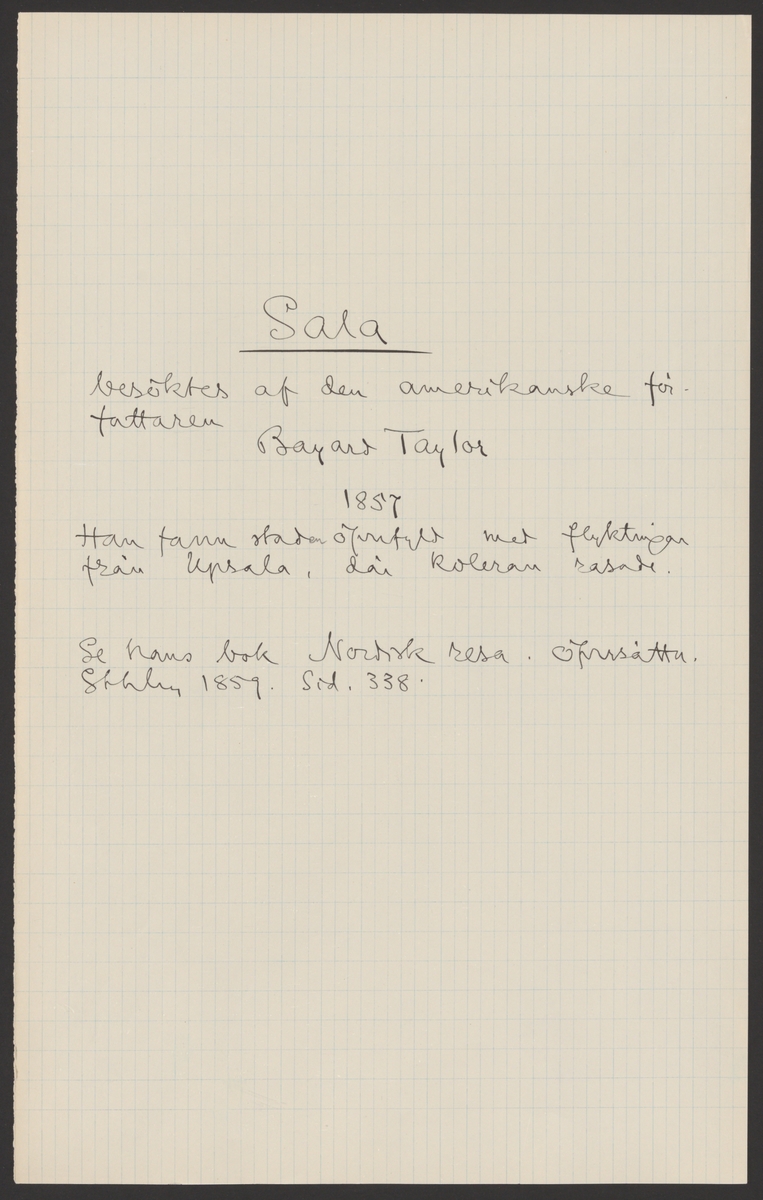 Sala
besöktes af den amerikanske för-
fattaren
Bayard Taylor
1857
Han fann staden öfverfyld med flyktingar
från Upsala, där koleran rasade.
Se hans bok Nordisk resa. Öfversättn.
Sthlm 1859. Sid. 338.